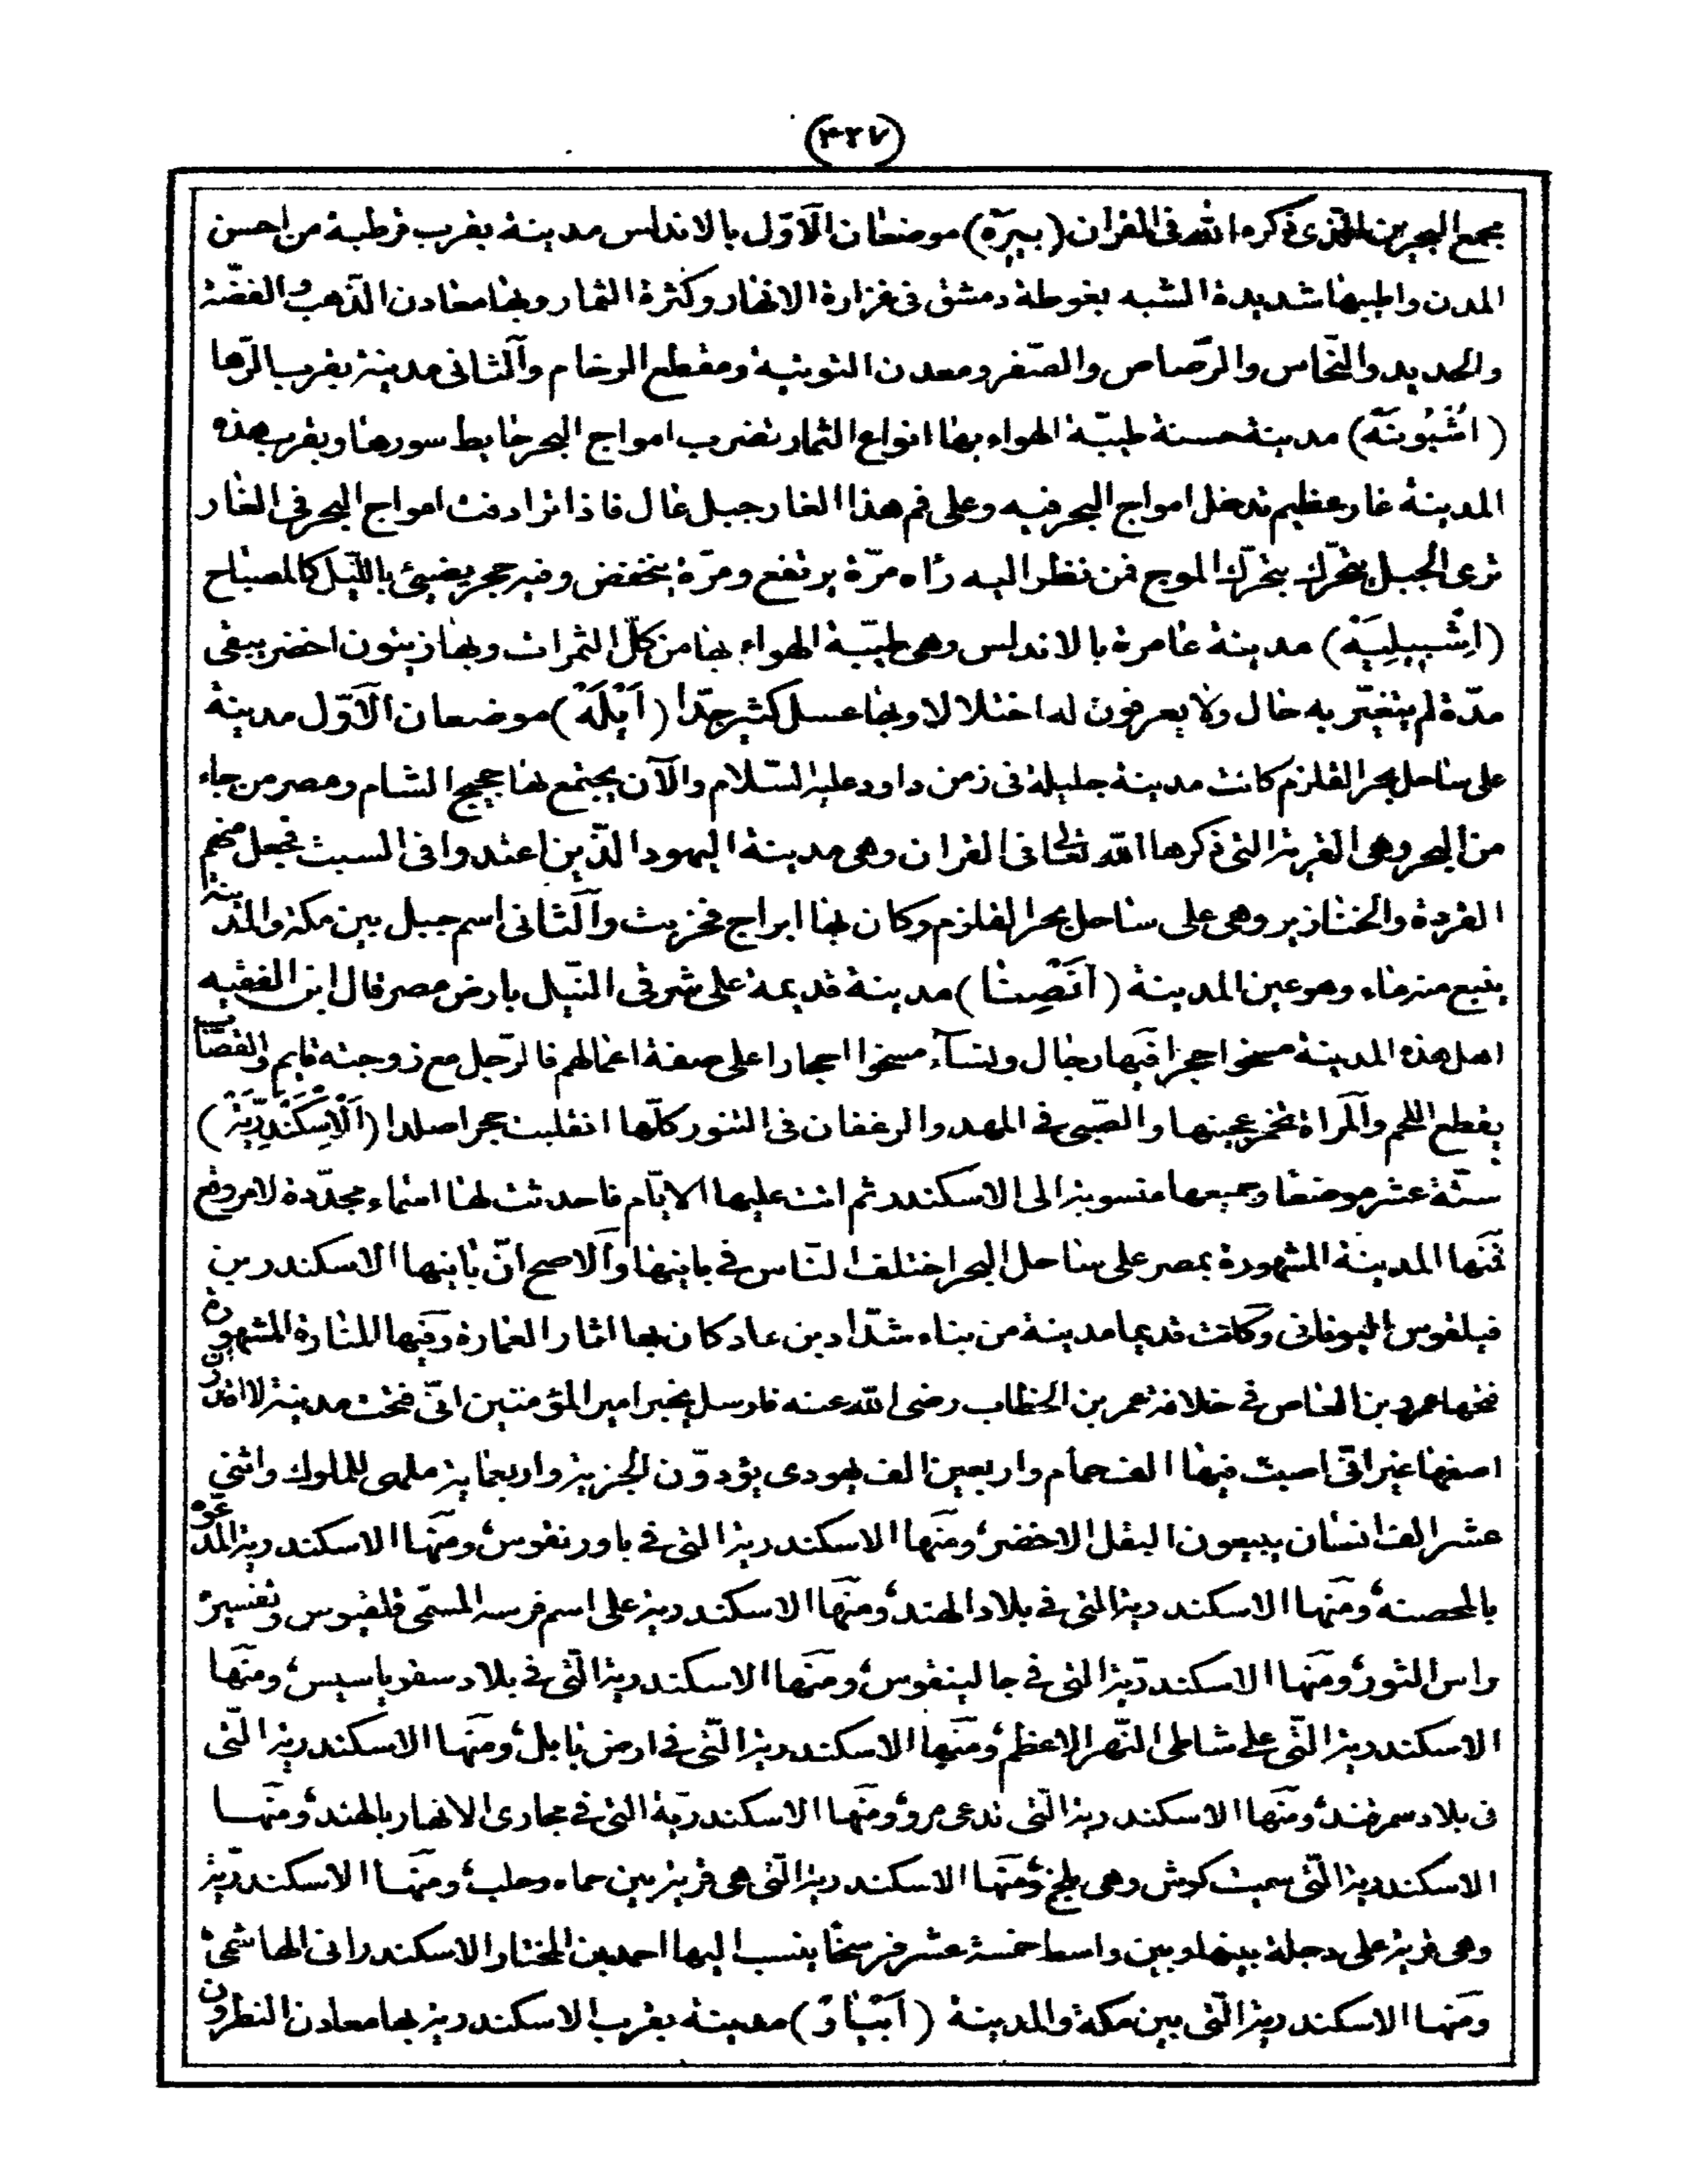 (٤٢٧)
مجمع البحرين الذى ذكره الله فى القران (بيرة) موضعان الاوّل بالاندلس مدينة بقرب قرطبة من احسن
المدن واطيبها شديدة الشبه بغوطة دمشق فى غزارة الانهار وكثرة الثمار وبها معادن الذّهب والفضّة
والحديد والنّحاس والرّصاص والصّفر ومعدن التوتية ومقطع الرخام والثانى مدينة بقرب الرّها
(اشْبُونَة) مدينة حسنة طيّبة الهواء بها انواع الثمار تضرب امواج البحر حايط سورها وبقرب هذه
المدينة غار عظيم تدخل امواج البحر فيه وعلى فم هذا الغار جبل عال فاذا ترادفت امواج البحر فى الغار
ترى الجبل يتحرّك بتحرّك الموج فمن نظر اليه رآه مرّة يرتفع ومرّة ينخفض وفيه حجر يضيئ باللّيل كالمصباح
(اِشْبِيلِيَة) مدينة عامرة بالاندلس وهى طيّبة الهواء بها من كلّ الثمرات وبها زيتون اخضر يبقى
مدّة لم يتغيّر به حال ولا يعرفون له اختلالا وبها عسل كثير جدّا (اَيْلَة) موضعان الاوّل مدينة
على ساحل بحر القلزم كانت مدينة جليلة فى زمن داود عليه السّلام والآن يجتمع بها حجيج الشام ومصر من جاء
من البحر وهى القرية التى ذكرها الله تعالى فى القران وهى مدينة اليهود الّذين اعتدوا فى السبت فجعل منهم
القردة والخنازير وهى على ساحل بحر القلزم وكان بها ابراج فخربت والثانى اسم جبل بين مكة والمدينة
ينبع منه ماء وهو عين المدينة (اَنْصِنا) مدينة قديمة على شرقى النّيل بارض مصر قال ابن الفقيه
اهل هذه المدينة مسخوا حجرا فيها رجال ونسآء مسخوا احجارا على صفة اعمالهم فالرّجل مع زوجته نايم والقصّاب
يقطع اللحم والمراة تخمر عجينها والصّبى فى المهد والرغفان فى التنور كلّها انقلبت حجرا صلدا (اَلْاِسْكَنْدَرِيَّة)
ستّة عشر موضعا وجميعها منسوبة الى الاسكندر ثم اتت عليها الايّام فاحدثت لها اسماء مجدّدة لامر وقع
فمنها المدينة المشهورة بمصر على ساحل البحر اختلف النّاس فى بانيها والاصح انّ بانيها الاسكندر بن
فيلفوس اليونانى وكانت قديما مدينة من بناء شدّاد بن عاد كان بها اثار العمارة وفيها المنارة المشهورة
فتحها عمرو بن العاص فى خلافة عمر بن الخطاب رضى الله عنه فارسل يخبر امير المؤمنين انّى فتحت مدينة لا اقدر ان
اصفها غير انّى اصبت فيها الف حمام واربعين الف يهودى يؤدوّن الجزية واربعماية ملهى للملوك واثنى
عشر الف انسان يبيعون البقل الاخضر ومنها الاسكندرية التى فى باورنقوس ومنها الاسكندرية المدعوّة
بالمحصنة ومنها الاسكندرية التى فى بلاد الهند ومنها الاسكندرية على اسم فرسه المسمّى قلفيوس وتفسيره
راس الثور ومنها الاسكندريّة التى فى جالينقوس ومنها الاسكندرية الّتى فى بلاد سقوياسيس ومنها
الاسكندرية الّتى على شاطى النّهر الاعظم ومنها الاسكندرية الّتى فى ارض بابل ومنها الاسكندرية الّتى
فى بلاد سمرقند ومنها الاسكندرية الّتى تدعى مرو ومنها الاسكندريّة التى فى مجارى الانهار بالهند ومنها
الاسكندرية الّتى سميت كوش وهى بلخ ومنها الاسكندرية الّتى هى قرية بين حماه وحلب ومنها الاسكندريّة
وهى قرية على دجلة بينها وبين واسط خمسة عشر فرسخا ينسب اليها احمد بن المختار الاسكندرانى الهاشمى
ومنها الاسكندرية الّتى بين مكة والمدينة (اَبْيَار) مدينة بقرب الاسكندرية بها معادن النطرون